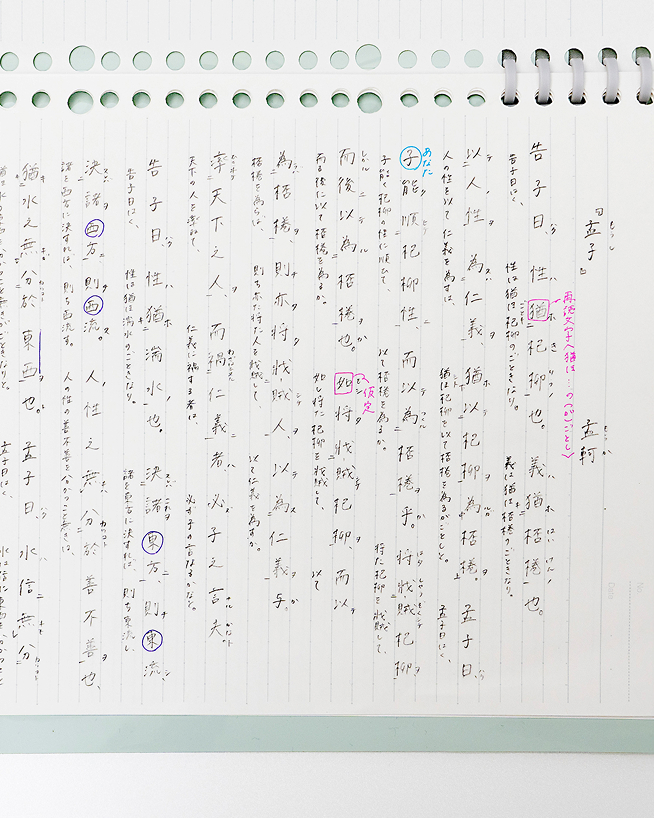 『孟子』 孟軻
再読文字「猶は…(の)(が)ごとし」
告子曰、性猶杞柳也。義猶桮棬也。
告子曰く、性は猶ほ杞柳のごときなり。義は猶ほ桮棬のごときなり。
以人性為仁義、猶以杞柳為桮棬。孟子曰、
人の性を以て仁義を為すは、猶ほ杞柳を以て桮棬を為るがごとしと。孟子曰く、
あなた
子能順杞柳性、而以為桮棬乎。将戕賊杞柳
子能く杞柳の性に順ひて、以て桮棬を為るか。将た杞柳を戕賊して、
仮定
而後以為桮棬也。如将戕賊杞柳、而以
而る後に以て桮棬を為るか。如し将た杞柳を戕賊して以て
為桮棬、則亦将戕賊人、以為仁義乎。
桮棬を為らば、則ち亦た将た人を戕賊して、以て仁義を為すか。
率天下之人、而禍仁義者、必子之言夫
天下の人を率ゐて、仁義に禍する者は、必ず子の言なるかなと。
告子曰、性猶湍水也。決諸東方、則東流、
告子曰く、性は猶ほ湍水のごときなり。諸を東方に決すれば、則ち東流し、
決諸西方、則西流。人性之無分於善不善也、
諸を西方に決すれば、則ち西流す。人の性の善不善を分かつこと無きは、
猶水之無分於東西也。孟子曰、水信無分